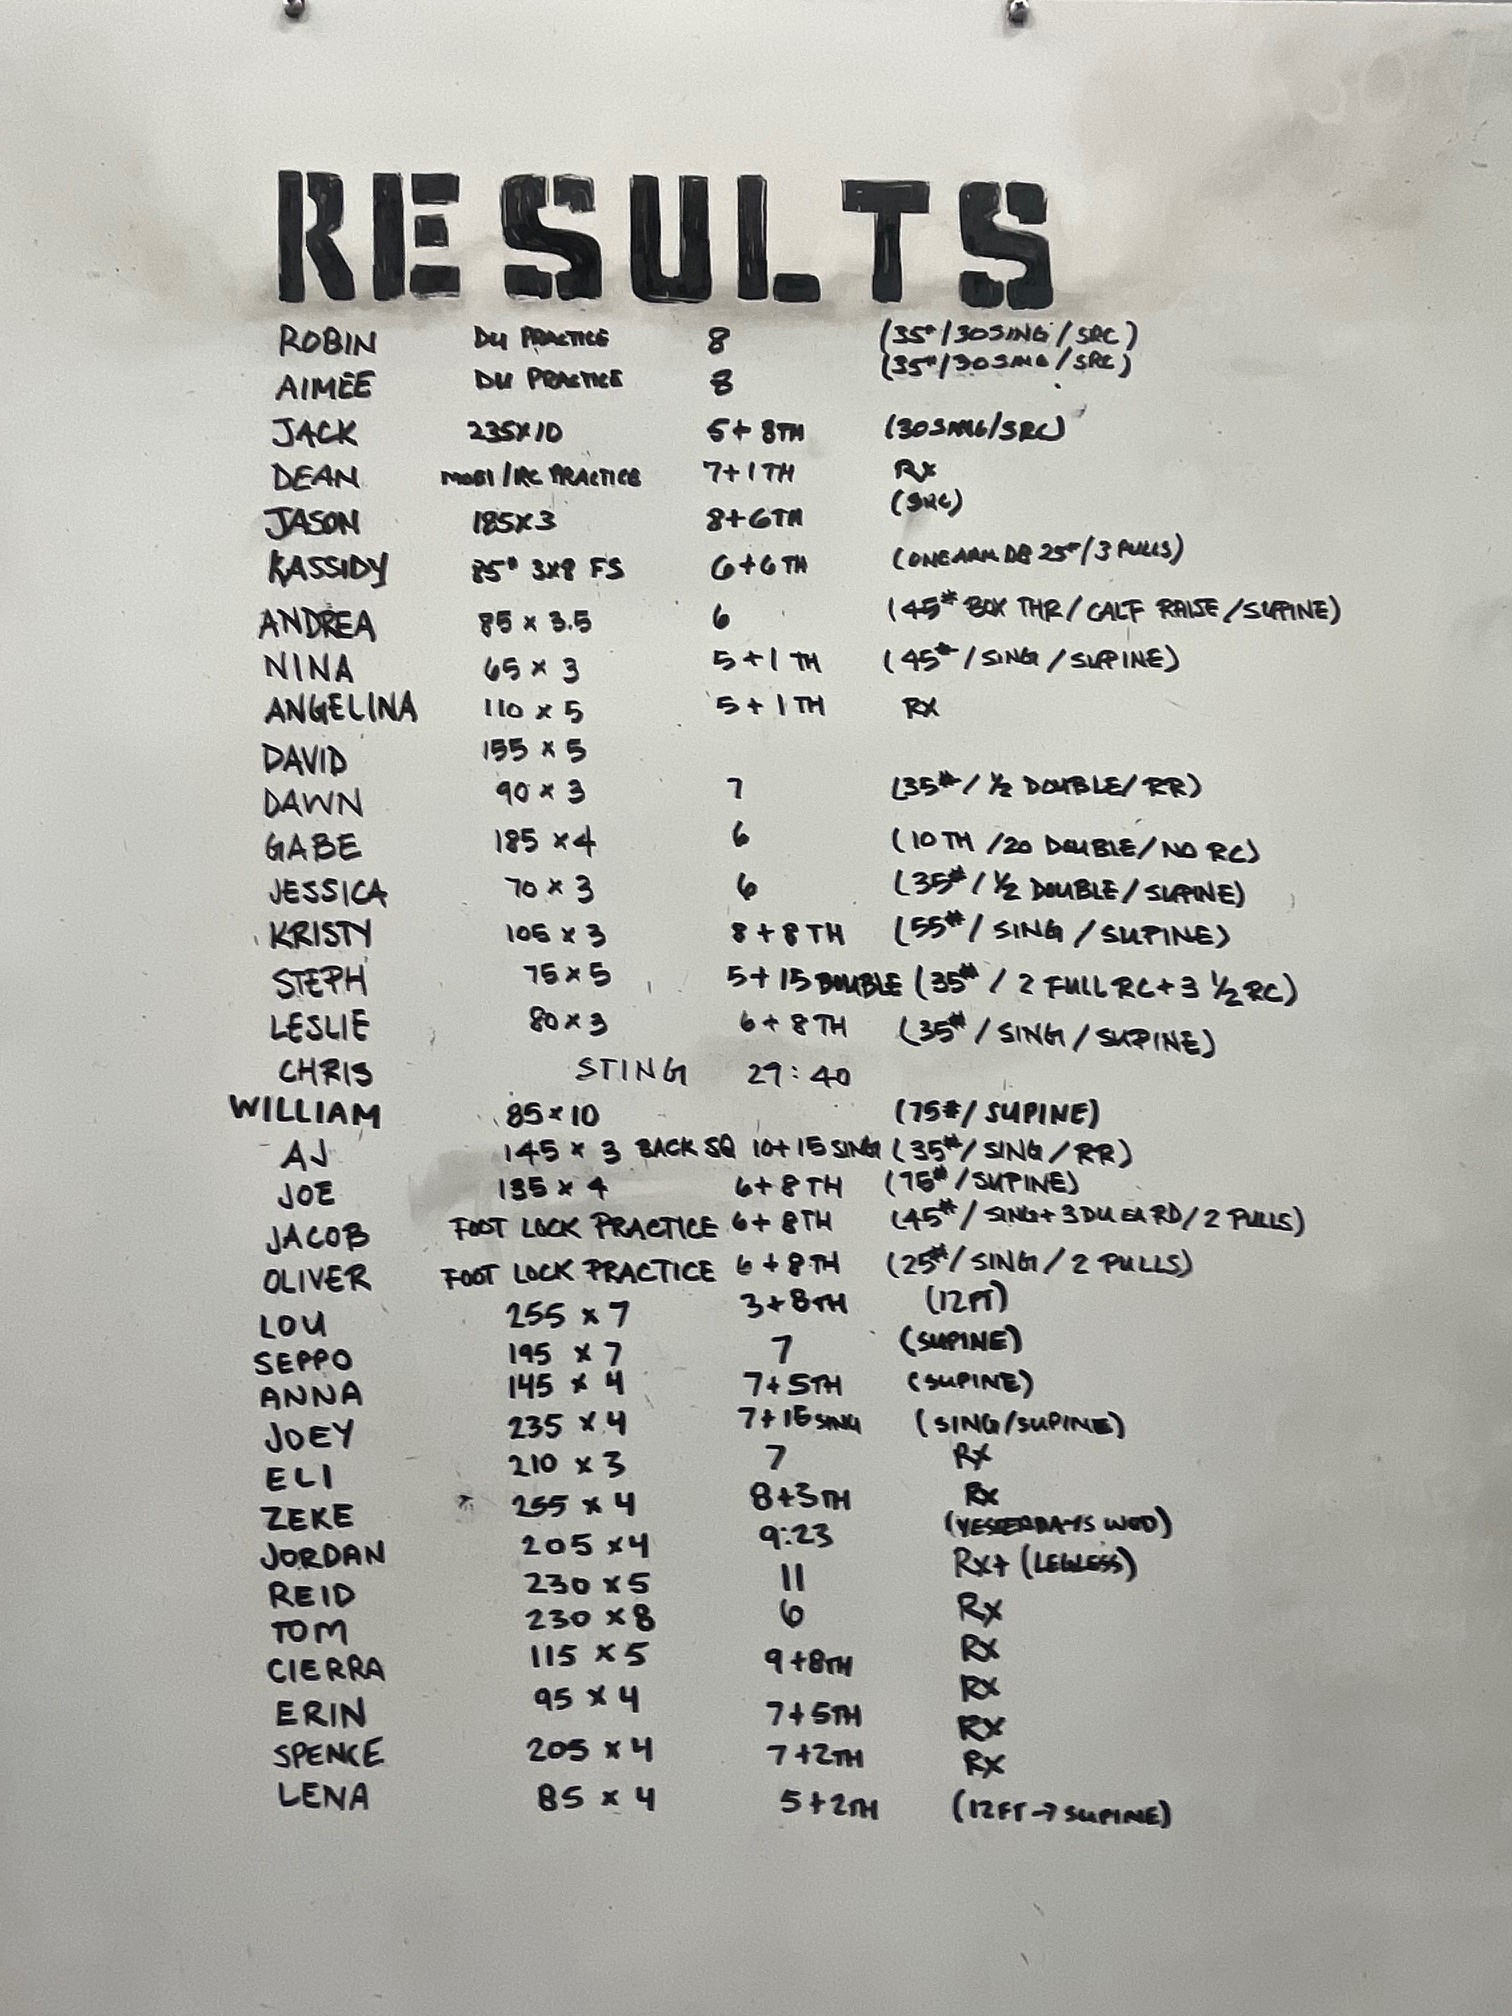 RESULTS
ROBIN DU PRACTICE 8 (35#/30SING/SRC)
AIMEE DU PRACTICE 8 (35#/30SING/SRC)
JACK 235X10 5+8TH (30SING/SRC)
DEAN MOBI/RC PRACTICE 7+1TH RX
JASON 185X3 8+6TH (SRC)
KASSIDY 85# 3X8 FS 6+6TH (ONE ARM DB 25#/3 PULLS)
ANDREA 85 x 3.5 6 (45# BOX THR/CALF RAISE/SUPINE)
NINA 65 x 3 5+1 TH (45#/SING/SUPINE)
ANGELINA 110 x 5 5+1TH RX
DAVID 155 x 5
DAWN 90 x 3 7 (35#/ 1/2 DOUBLE/RR)
GABE 185 x4 6 (10TH/20 DOUBLE/NO RC)
JESSICA 70 x 3 6 (35#/ 1/2 DOUBLE/SUPINE)
KRISTY 105 x 3 8+8TH (55#/ SING/SUPINE)
STEPH 75x5 5+15 DOUBLE (35#/ 2 FULL RC+3 1/2 RC)
LESLIE 80x3 6+8TH (35#/SING/SUPINE)
CHRIS STING 29:40
WILLIAM 85x10 (75#/SUPINE)
AJ 145 x 3 BACK SQ 10+15 SING (35#/SING/RR)
JOE 135 x 4 6+8TH (75#/SUPINE)
JACOB FOOT LOCK PRACTICE 6+8TH (45#/SING+3DU EA RD/2 PULLS)
OLIVER FOOT LOCK PRACTICE 6+8TH (25#/SING/2 PULLS)
LOU 255 x 7 3+8TH (12FT)
SEPPO 195 x 7 7 (SUPINE)
ANNA 145 x 4 7+5TH (SUPINE)
JOEY 235 x 4 7+15 SING (SING/SUPINE)
ELI 210 x 3 7 Rx
ZEKE 255 x 4 8+3TH Rx
JORDAN 205 x4 9:23 (YESTERDAYS WOD)
REID 230 x 5 11 Rx+ (LEGLESS)
TOM 230 x 8 6 Rx
CIERRA 115 x 5 9+8TH Rx
Rx
ERIN 95 x 4 7+5TH Rx
SPENCE 205 x 4 7+2TH Rx
LENA 85 x 4 5+2TH (12FT→SUPINE)